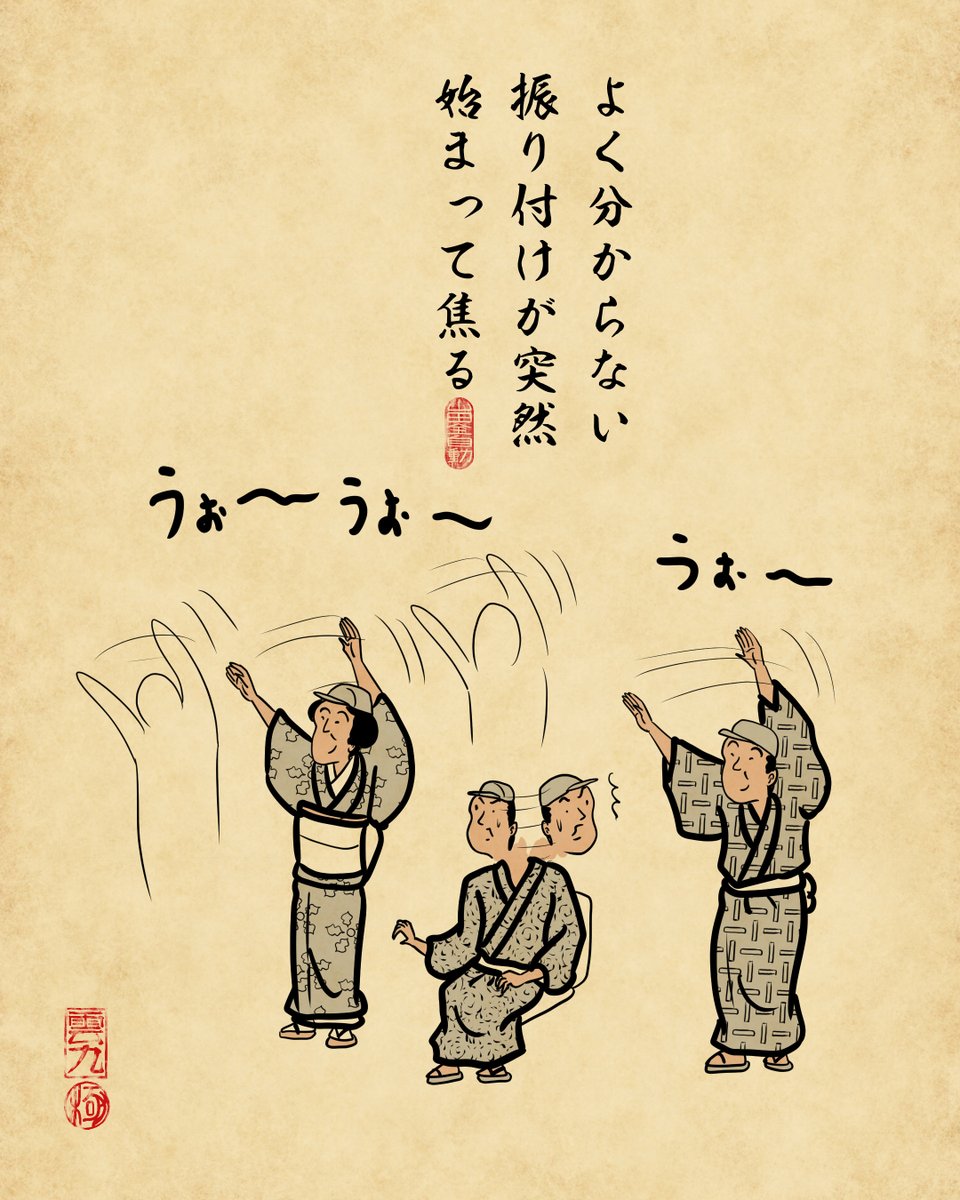 よく分からない
振り付けが突然
始まって焦る
うぉ〜うぉ〜
うぉ〜